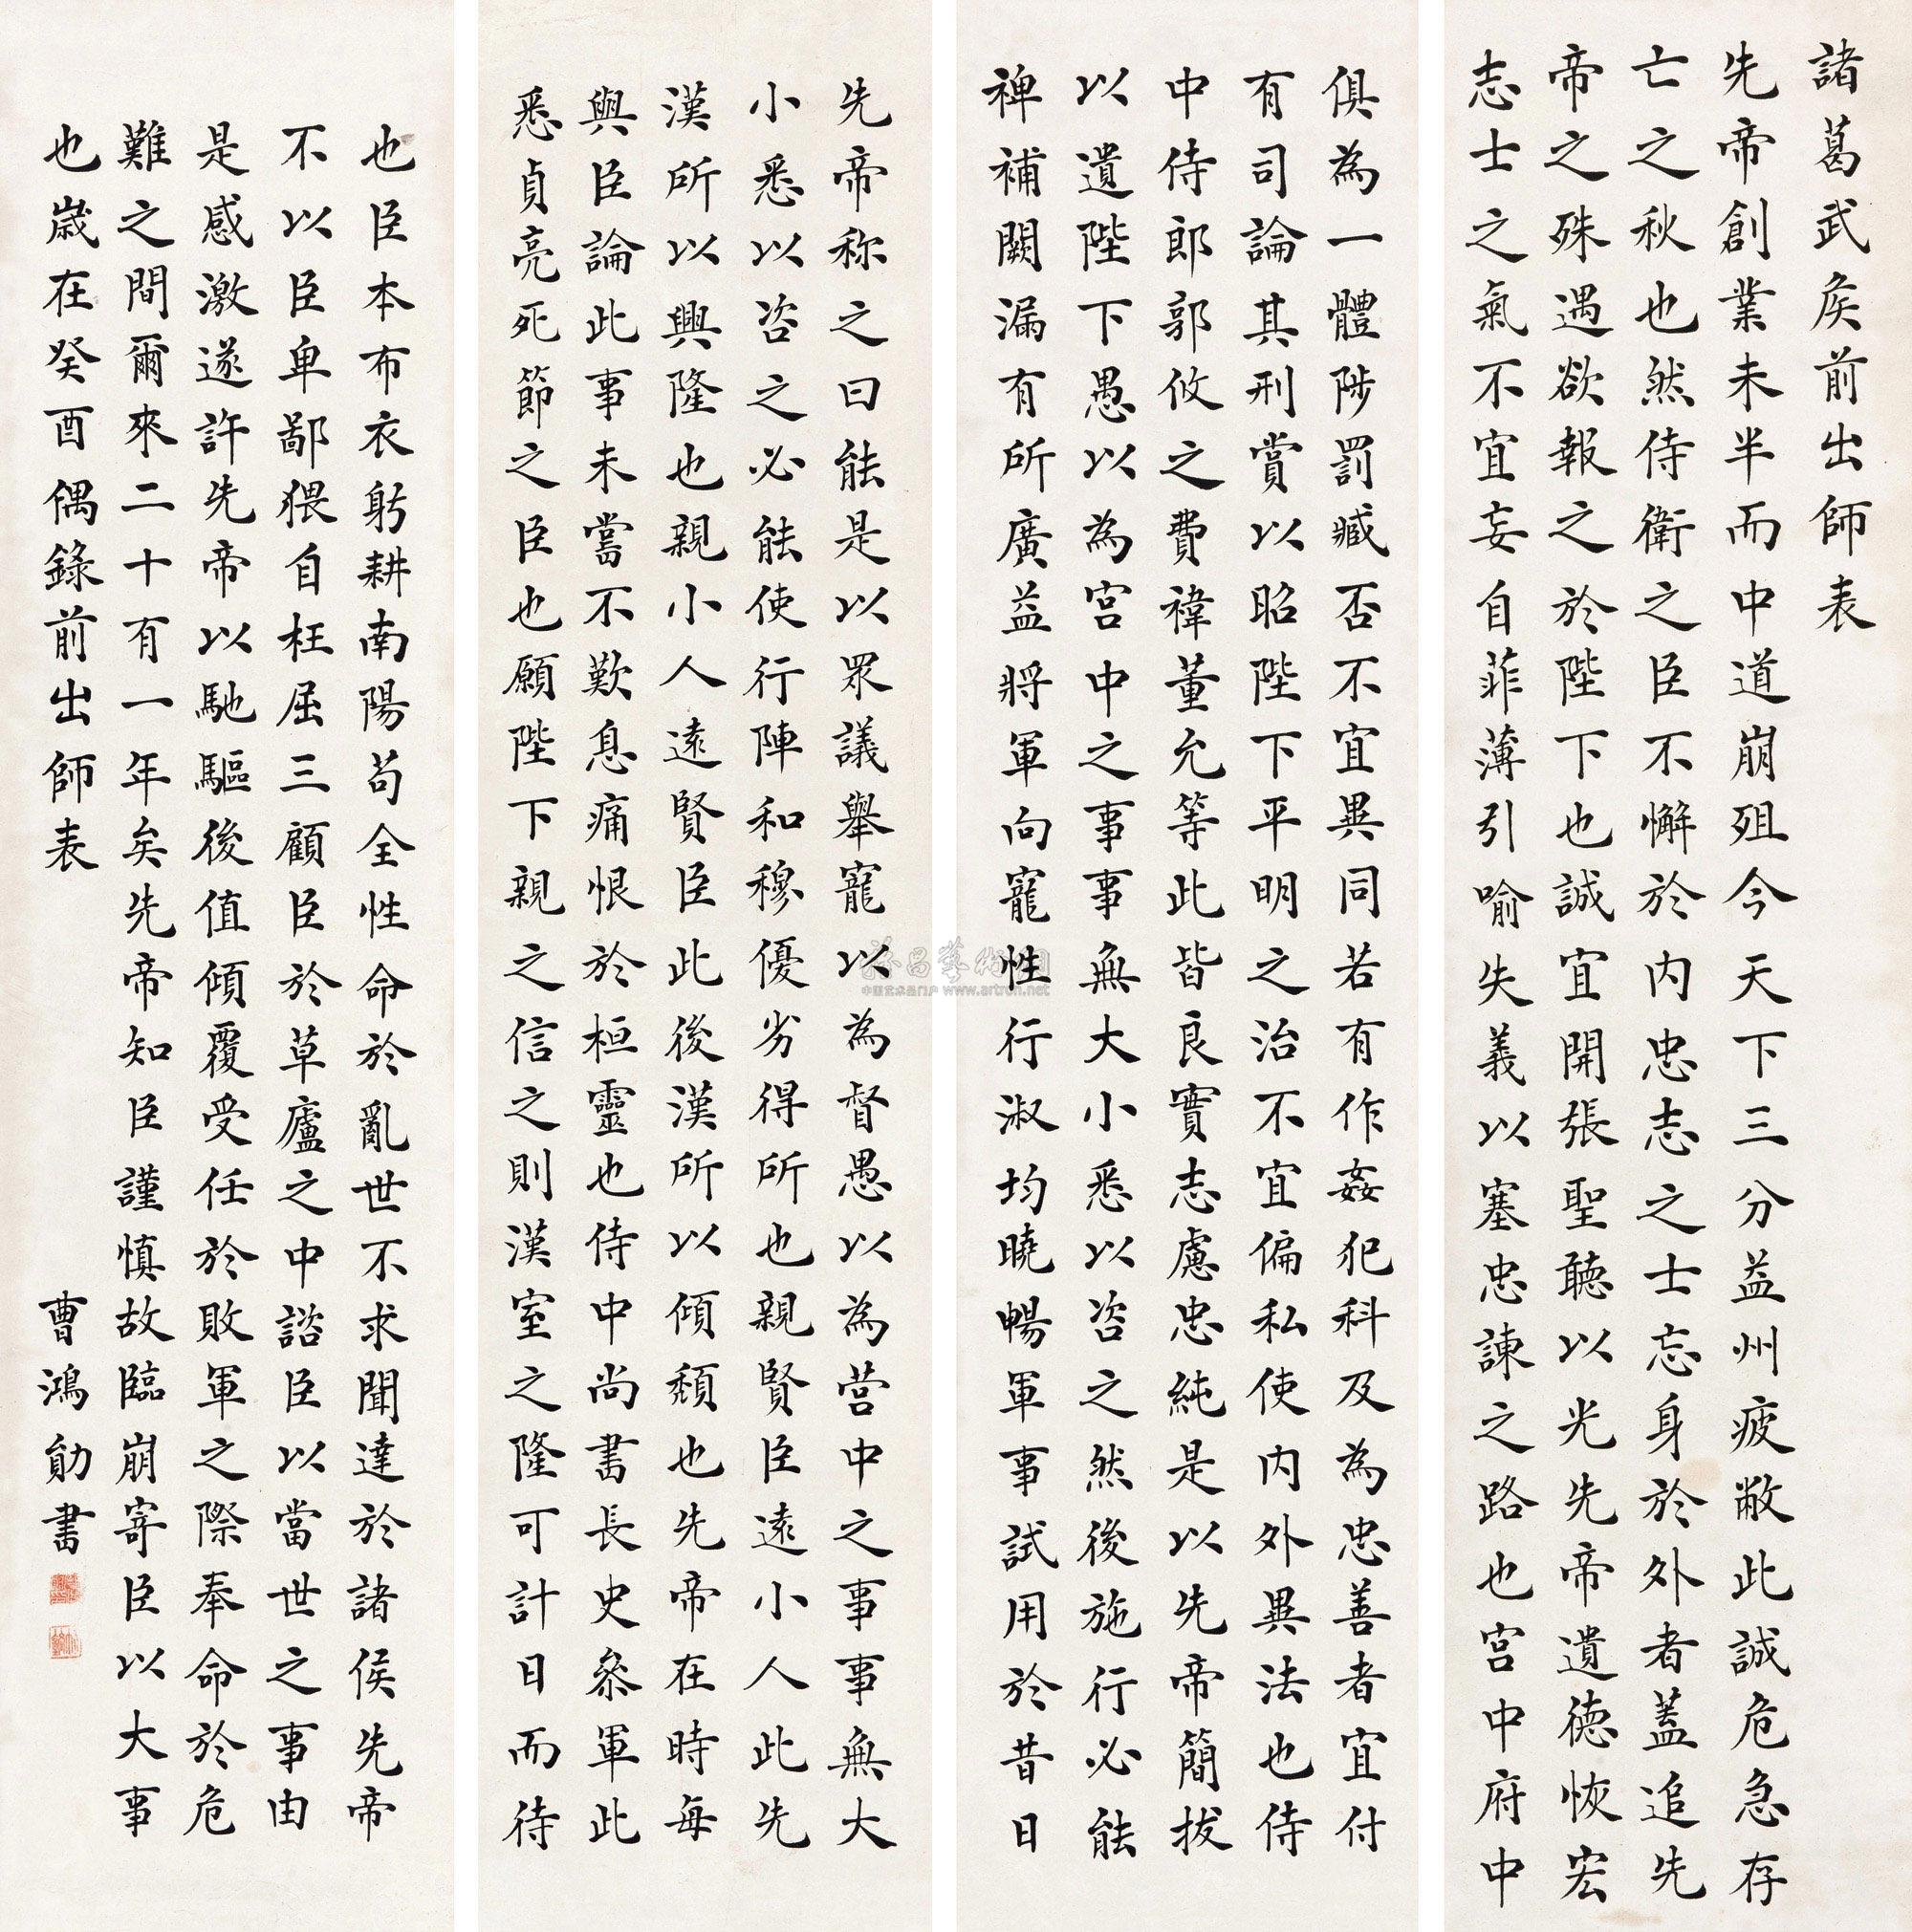 諸葛武侯前出師表
先帝創業未半而中道崩殂今天下三分益州疲敝此誠危急存
亡之秋也然侍衛之臣不懈於內忠志之士忘身於外者蓋追先
帝之殊遇欲報之於陛下也誠宜開張聖聽以光先帝遺德恢宏
志士之氣不宜妄自菲薄引喻失義以塞忠諫之路也宮中府中
俱為一體陟罰臧否不宜異同若有作姦犯科及為忠善者宜付
有司論其刑賞以昭陛下平明之治不宜偏私使內外異法也侍
中侍郎郭攸之費禕董允等此皆良實志慮忠純是以先帝簡拔
以遺陛下愚以為宮中之事事無大小悉以咨之然後施行必能
裨補闕漏有所廣益將軍向寵性行淑均曉暢軍事試用於昔日
先帝称之曰能是以眾議舉寵以為督愚以為营中之事事無大
小悉以咨之必能使行陣和穆優劣得所也親賢臣遠小人此先
漢所以興隆也親小人遠賢臣此後漢所以傾頹也先帝在時每
與臣論此事未嘗不歎息痛恨於桓靈也侍中尚書長史叅軍此
悉貞亮死節之臣也願陛下親之信之則漢室之隆可計日而待
也臣本布衣躬耕南陽苟全性命於亂世不求聞達於諸侯先帝
不以臣卑鄙猥自枉屈三顧臣於草廬之中諮臣以當世之事由
是感激遂許先帝以馳驅後值傾覆受任於敗軍之際奉命於危
難之間爾來二十有一年矣先帝知臣謹慎故臨崩寄臣以大事
也歲在癸酉偶錄前出師表
曹鴻勛書
www.artron.net